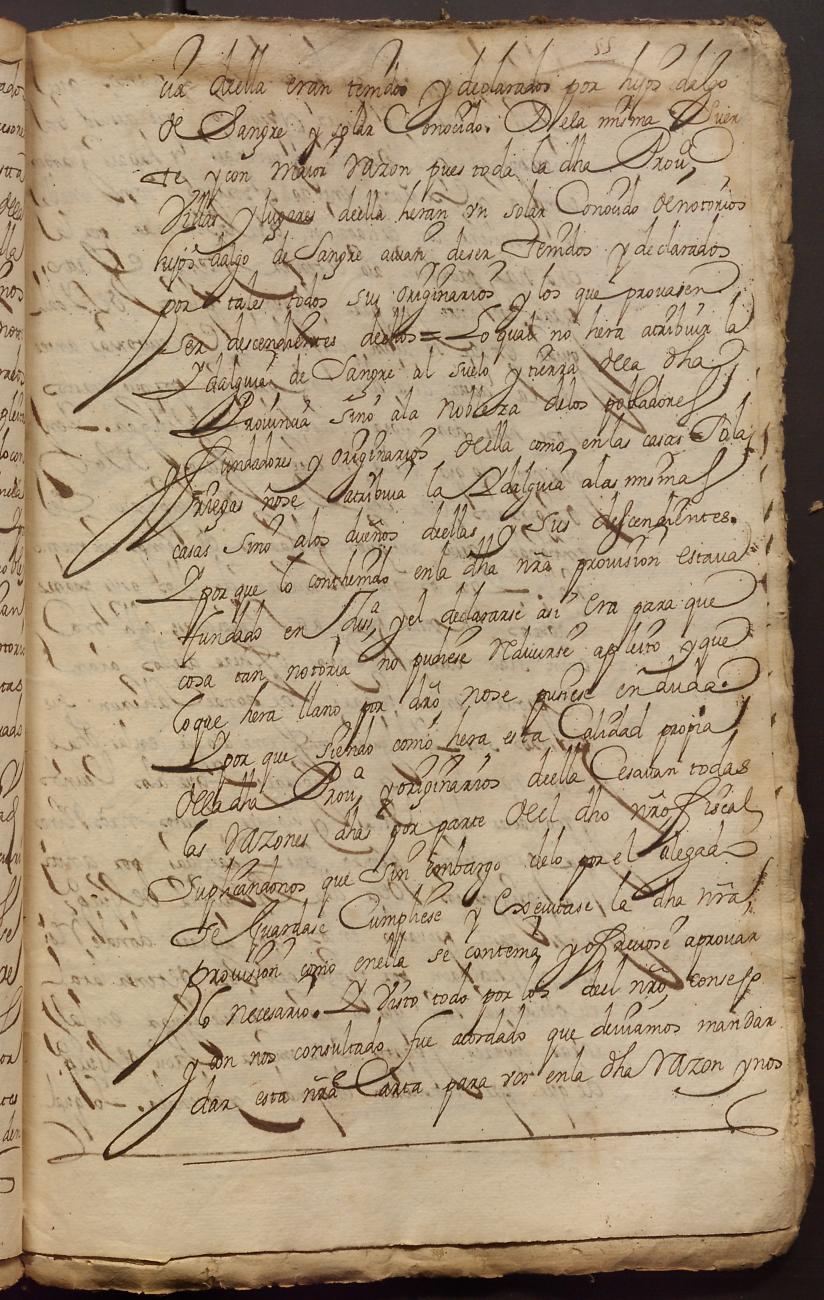 55
cia della eran temidos y declarados por hijos dalgo
de Sangre y solar Conocido. Dela misma Suer
te y con maior Razon pues toda la dha Prouª
Villas y lugares della heran Vn solar Conocido de notorios
hijos dalgo de Sangre auian deser Temidos y declarados
por tales todos sus Originarios y los que prouasen
ser descendientes dellos = Lo qual no hera atribuir la
Ydalguia de Sangre al suelo y tierra dela dha
Prouincia sino ala Nobleza delos pobladores
Fundadores y Originarios della como en las casas Sola
riegas nose atribuia la Ydalguia alas mismas
casas sino alos dueños dellas y Sus descendientes.
Y por que lo contenido enla dha nrã, prouision estaua
fundado en Justª, y el declararse asi Era para que
cosa tan notoria no pudiese Reducirse apleito y que
lo que hera llano por drõ nose pusiese en duda.
Y por que siendo como hera esta Calidad propia
dela dha Prouª y originarios della Cesauan todas
las Razones dhas por parte del dho nrõ fiscal
Suplicandonos que Sin embargo delo por el alegado
Se Guardase Cumpliese y Executase la dha nrã,
prouision como enella se contenia y ofreciose aprouar
lo necesario. Y Visto todo por los del nrõ, consejo
y con nos consultado fue acordado que deuiamos mandar
dar esta nrã Carta para vos enla dha Razon y nos